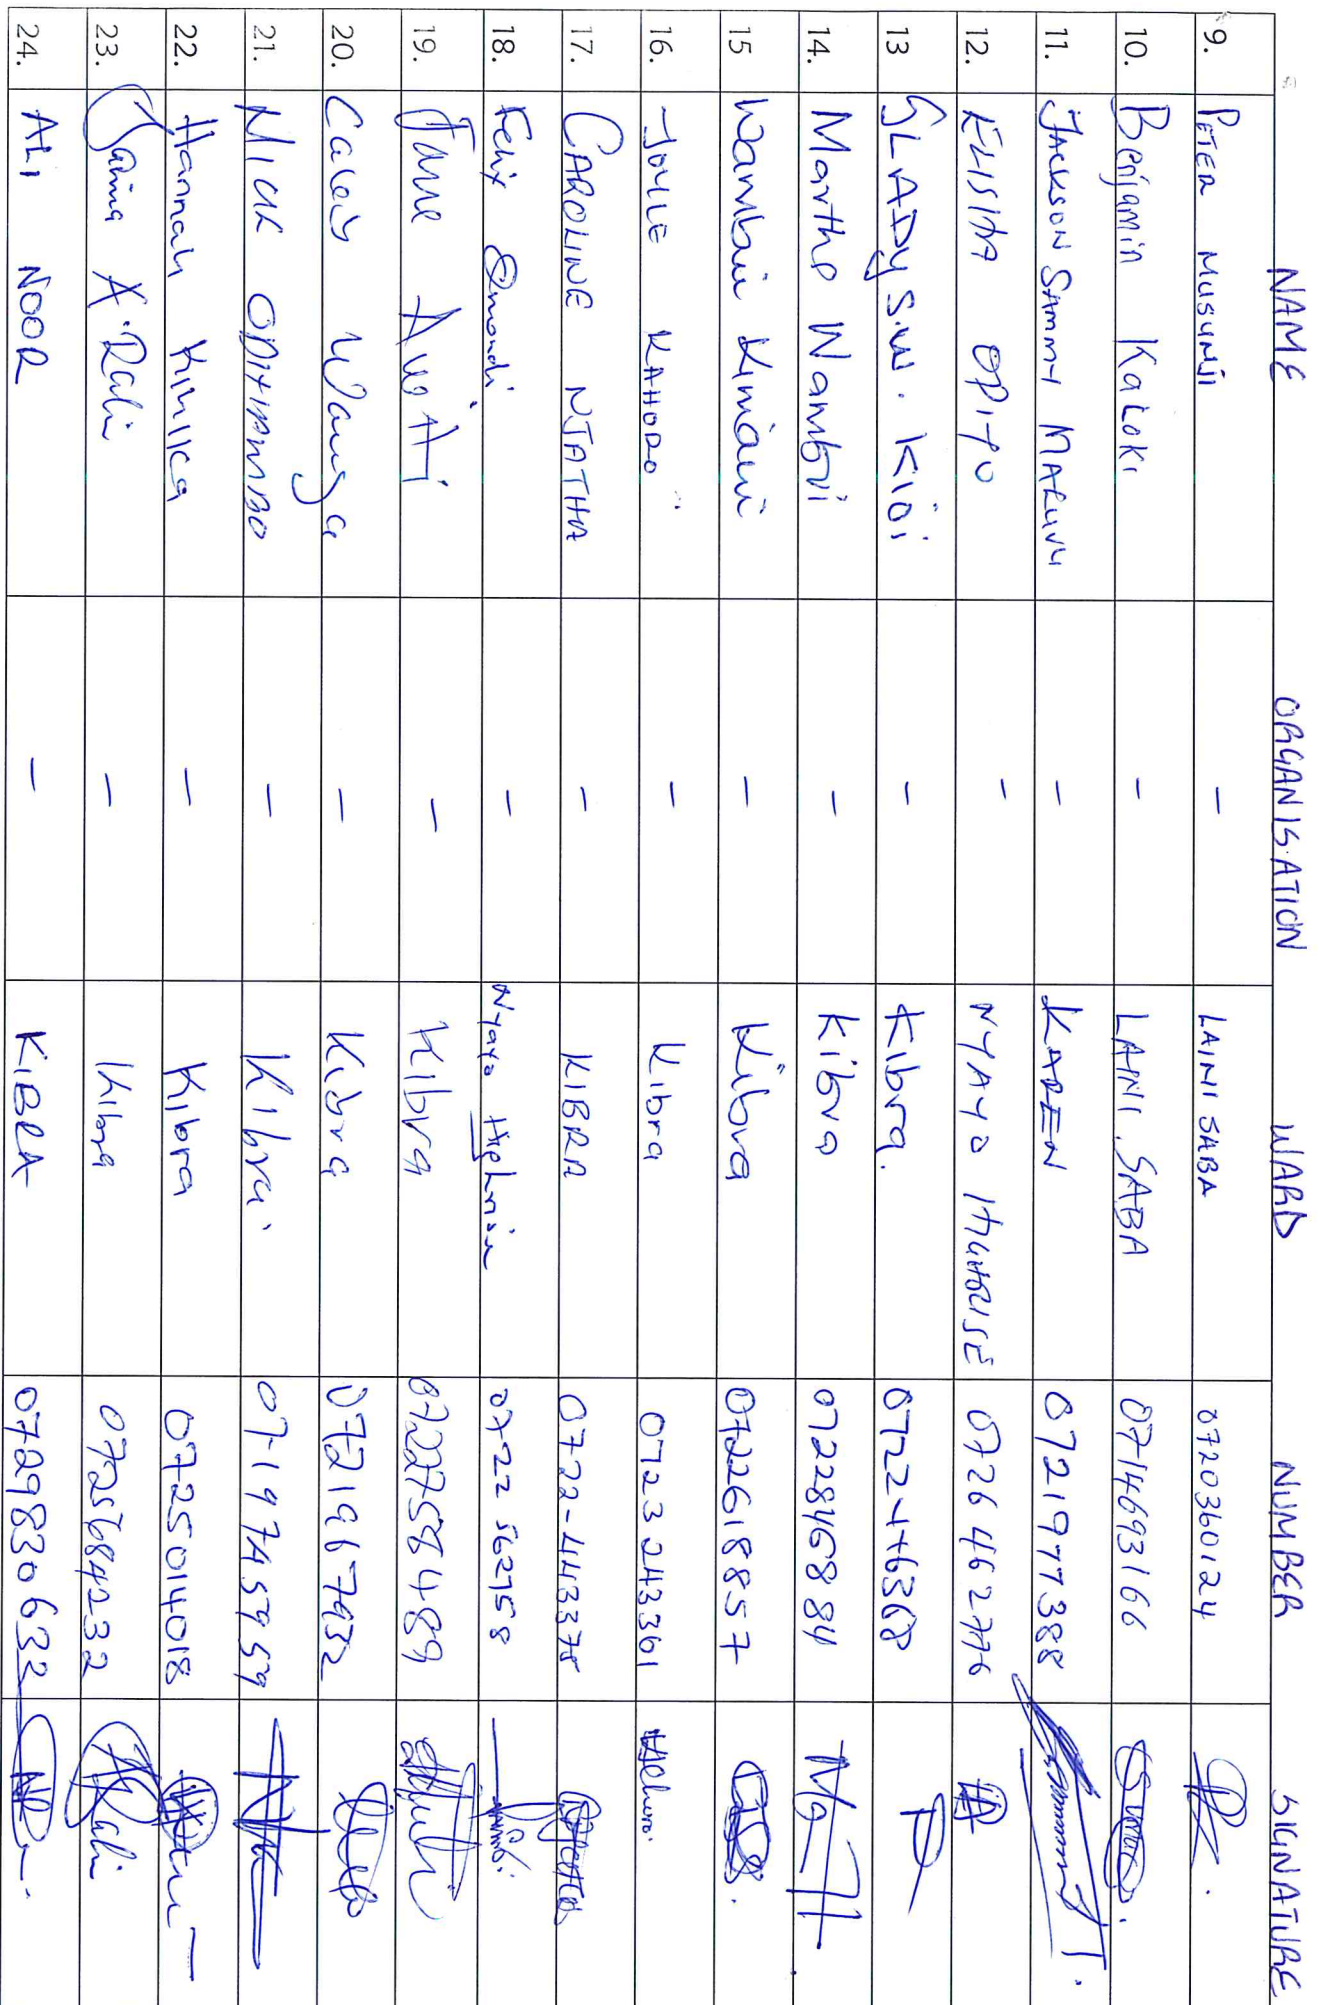 NAME ORGANISATION WARD NUMBER SIGNATURE
9. PETER MUSUNJI - LAINI SABA 0720360124
10. Benjamin KaLoki - LAINI SABA 0714693166
11. JACKSON SAMMY MALUVU - KAREN 0721977388
12. ELISHA OPIYO - NYAYO HIGHRISE 0726462776
13 GLADYS.W. Kioi - Kibra. 0722446368
14. Martha Wambui - Kibra 0722846884
15 Wambui Kimani - Kibra 0722618857
16. JOYCE KAHORO - Kibra 0723243361
17. CAROLINE NJATHA - KIBRA 0722-443375
18. Felix Omondi - Nyayo Highrise 0722 562758
19. Jane AWITI - Kibra 0722758489
20. Caleb Wanga - Kibra 0721967932
21. NICK ODHIAMBO - Kibra 0719745959
22. Hannah - Kibra 0725014018
23. A. Rabi - Kibra 0725684232
24. ALI NOOR - KIBRA 0729830632